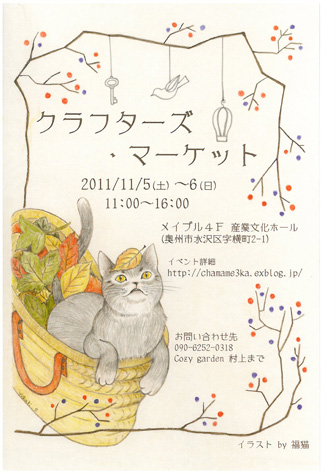 クラフターズ
・マーケット
2011/11/5(土)〜6(日)
11:00〜16:00
メイプル4F 産業文化ホール
(奥州市水沢区字横町2-1)
イベント詳細
http://chamame3ka.exblog.jp/
お問い合わせ先
090-6252-0318
Cozy garden 村上まで
イラスト by 福猫